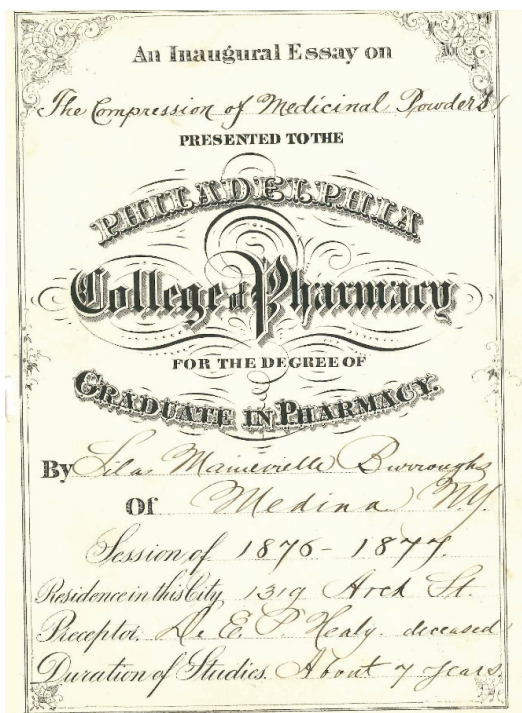 An Inaugural Essay on
The Compression of Medicinal Powders
PRESENTED TO THE
PHILADELPHIA
College of Pharmacy
FOR THE DEGREE OF
GRADUATE IN PHARMACY.
By Silas Mainville Burroughs
Of Medina N.Y.
Session of 1876-1877.
Residence in this City, 1319 Arch St.
Preceptor, Dr E. P Healy. deceased
Duration of Studies. About 7 years.